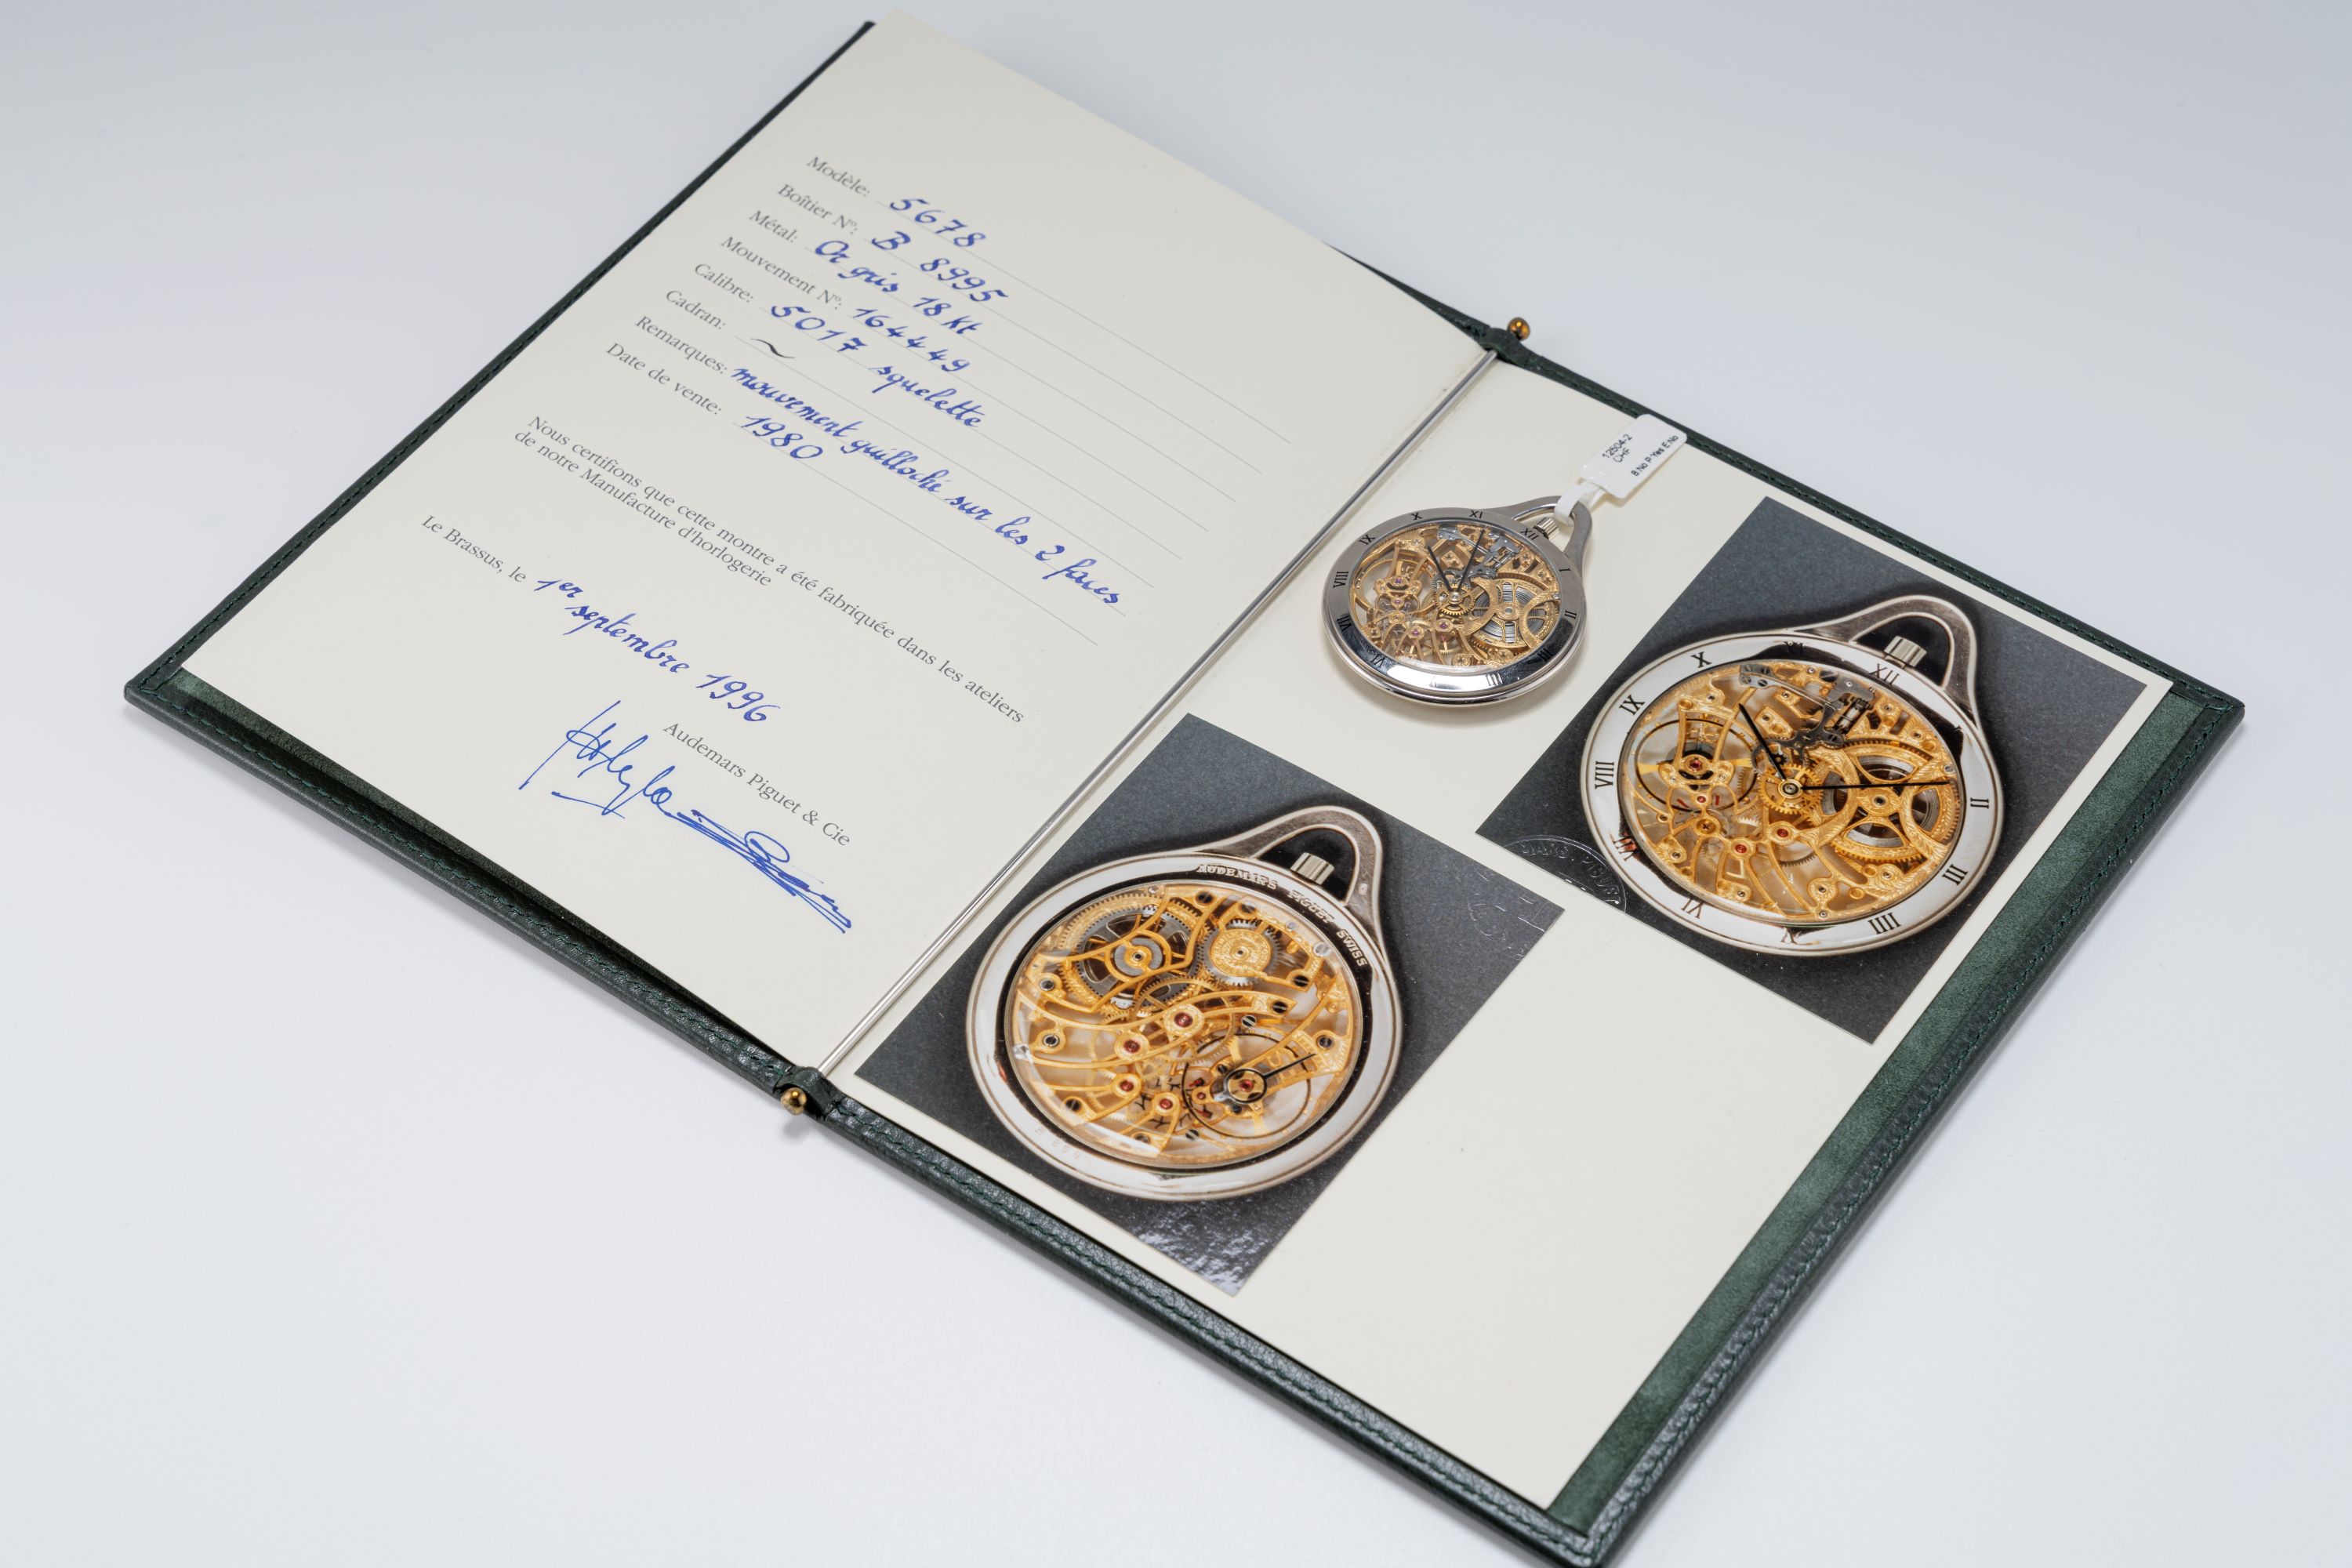 Modèle: 5678
Boîtier Nº: B 8995
Métal: Or gris 18 kt
Mouvement Nº: 164449
Calibre: 5017 squelette
Cadran: ~
Remarques: mouvement guilloché sur les 2 faces
Date de vente: 1980
Nous certifions que cette montre a été fabriquée dans les ateliers
de notre Manufacture d'horlogerie
Le Brassus, le 1er
septembre 1996
Audemars Piguet & Cie
12504-2
CHF
B No P Yes E No
X XI XII I II III IIII VI VII VIII IX
X XI XII II III IIII V VI VII VIII IX
AUDEMARS PIGUET SWISS